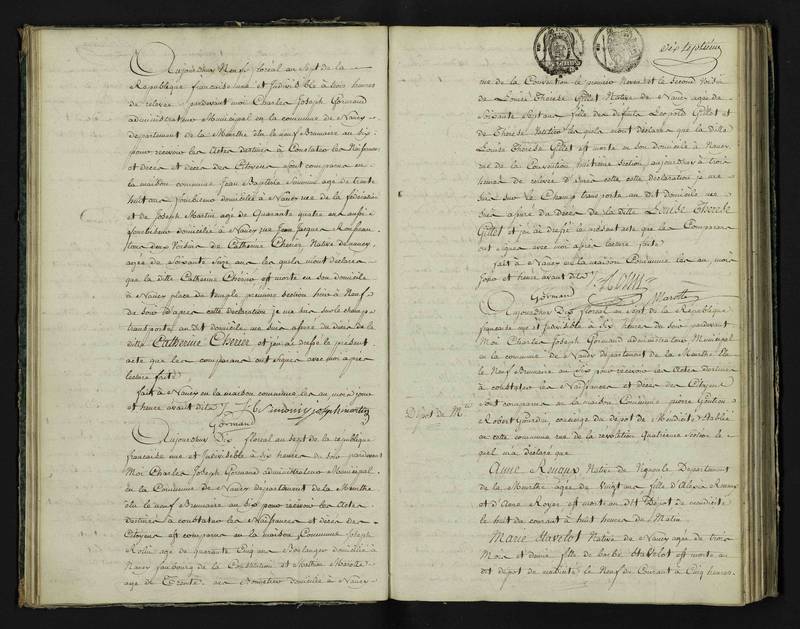 Aujourdhuy Neuf floréal an sept de la
République française une et Indivisible à trois heures
de relevée pardevant moi Charles Joseph Gormand
administrateur Municipal en la commune de Nancy
departement de la Meurthe élu le neuf Brumaire an six
pour recevoir les Actes destinés à Constater les Naissances
et décès des Citoyens sont comparus en
la maison commune Jean Baptiste agé de trente
huit ans domicilié à Nancy rue de la fédération
et de Joseph Martin agé de Quarante quatre ans aussi
domicilié à Nancy rue Jean Jacques Rousseau
tous deux Voisins de Catherine Chenier Native de nancy
agée de Soixante Seize ans les quels mont déclaré
que la ditte Catherine Chénier est morte en son domicile
à Nancy place du temple premiere section hier à Neuf
du soir d'apres cette déclaration je me suis sur le champ
transporté au Dit domicile me suis assuré du deces de la
ditte Catherine Chenier et j'en ai dressé le présent
acte que les comparans ont signés avec moi après
lecture faite
fait à Nancy en la maison commune les an mois jour
et heure avant dits joseph martin
Gormand
Aujourdhuy Dix floréal an sept de la république
française une et Indivisible à six heures du soir pardevant
Moi Charles Joseph Gormand administrateur Municipal
en la Commune de Nancy departement de la Meurthe
élu le neuf Brumaire an Six pour recevoir les Actes
destinés à constater les Naissances et décès des
Citoyens est comparus en la maison Commune Joseph
agé de quarante Cinq ans Boulanger domicilié à
Nancy faubourg de la Constitution et Mathieu Marotte
agé de Trente ans Bonnetier domicilié à Nancy
dix septième
rue de la Convention le premier Neveu et le second Voisin
de Louise Thérèse Gillet Native de Nancy agée de
Soixante Sept ans fille des défunts Léopold Gillet et
de Thérèse les quels mont déclaré que la ditte
Louise Thérèse Gillet est morte en son Domicile à Nancy
rue de la Convention huitieme section aujourdhuy à trois
heures de relevée d'après cette déclaration je me
suis sur le Champ transporté au Dit domicile me
suis assuré du Décès de la ditte Louise Thérèse
Gillet et j'ai ai dressé le présent acte que les Comparans
ont signés avec moi après lecture faite
fait à Nancy en la maison Commune les an mois
jour et heure avant dits
Gormand Marotte
Aujourdhuy Dix floréal an sept de la République
française une et Indivisible à Six heures du soir pardevant
Moi Charles Joseph Gormand administrateur Municipal
en la commune de Nancy Département de la Meurthe élu
le Neuf Brumaire an Six pour recevoir les Actes destinés
à constater les Naissances et décès des Citoyens
Dépôt de
sont comparus en la maison Commune pierre
Robert Gourdin, concierge du Dépôt de Mendicité établi
en cette commune rue de la révolution Quatrieme section le
quel m'a déclaré que
Anne Renaux Native de Département
de la Meurthe agée de vingt ans fille d'Alexis Renaux
et d'Anne Royer est morte au Dit Dépôt de mendicité
le huit du courant à huit heures du Matin
Marie Havelot Native de Nancy agée de trois
Mois et demie fille de barbe Havelot est morte au
dit dépôt de mendicité le Neuf du Courant à Cinq heures